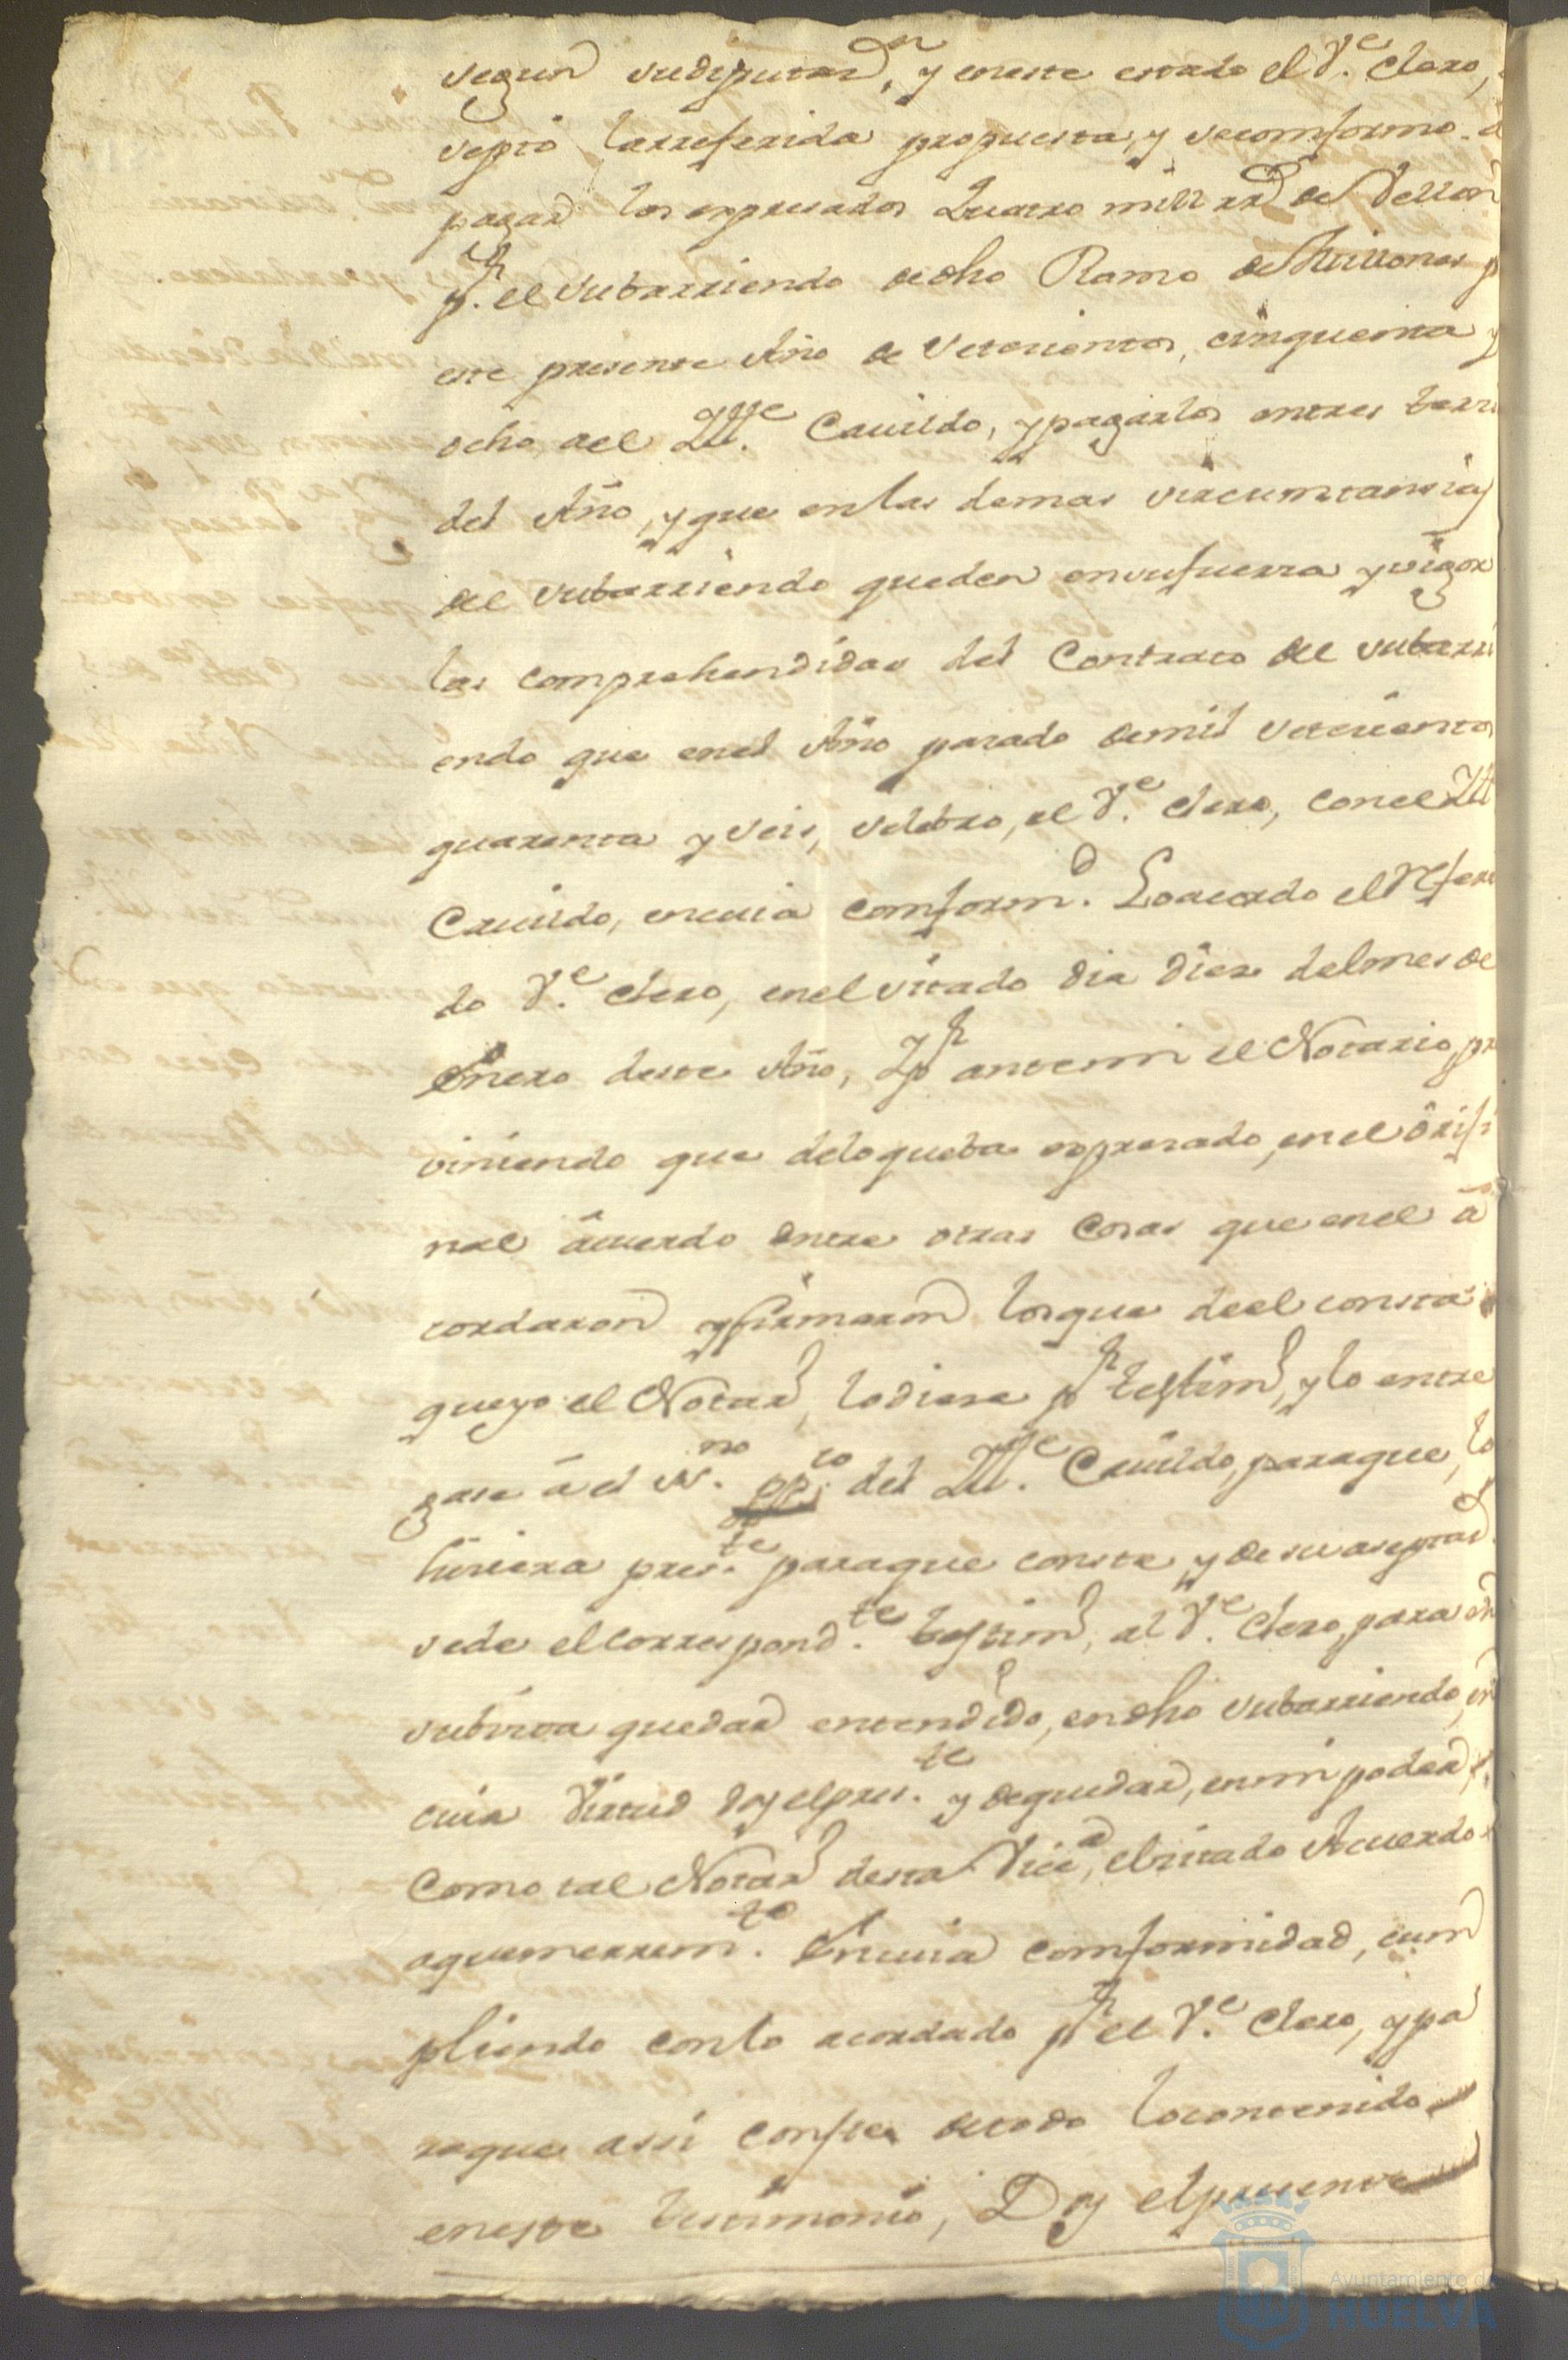 segun su diputaz.on, y en este estado el V.e Clero,
septò la rreferida propuesta, y se comformo. a
pagar los expresados Quatro mill rr.s de Vellon
p.r el subarriendo de dho Ramo de Millones p
este presente Año de Setesientos, cinquenta y
ocho, a el Ill.e Cauildo, y pagarlos en tres terzi
del Año, y que en las demas sircumstansias
de el subarriendo queden en su fuerza y vigor
las comprehendidas del Contrato de el subarri
endo que en el Año pasado de mil Setesientos
quarenta y seis, selebro, el V.e Clero, con el Ill
Cauildo, en cuia comform.d Lo acordo el Refери
do V.e Clero, en el sitado dia diez del mes de
Enero deste Año, Y p.r ante mi el Notario, pr
viniendo que de lo queba expresado, en el òrisi
nal àcuerdo entre otras Cosas que en el à
cordaron y firmaron los que de el consta
que yo el Notar.o, lo diese p.r testim.o, y lo entre
gase à el ss.no pp.co del Ill.e Cauildo, para que, lo
hisiera pres.te para que conste, y de su aseptaz.
se de el correspond.te testim.o, al V.e Clero, para en
subista quedar entendido, en dho subarriendo, en
cuia Virtud doy el pres.te y de quedar, en mi poder,
Como tal Notar.o desta Vic.a, el sitado Acuerdo
a que me rrem.to En cuia comformidad, cum
pliendo con lo acordado p.r el V.e Clero, y pa
ra que assi conste, de todo lo contenido
en este testimonio, Doy el presente
Ayuntamiento de
HUELVA